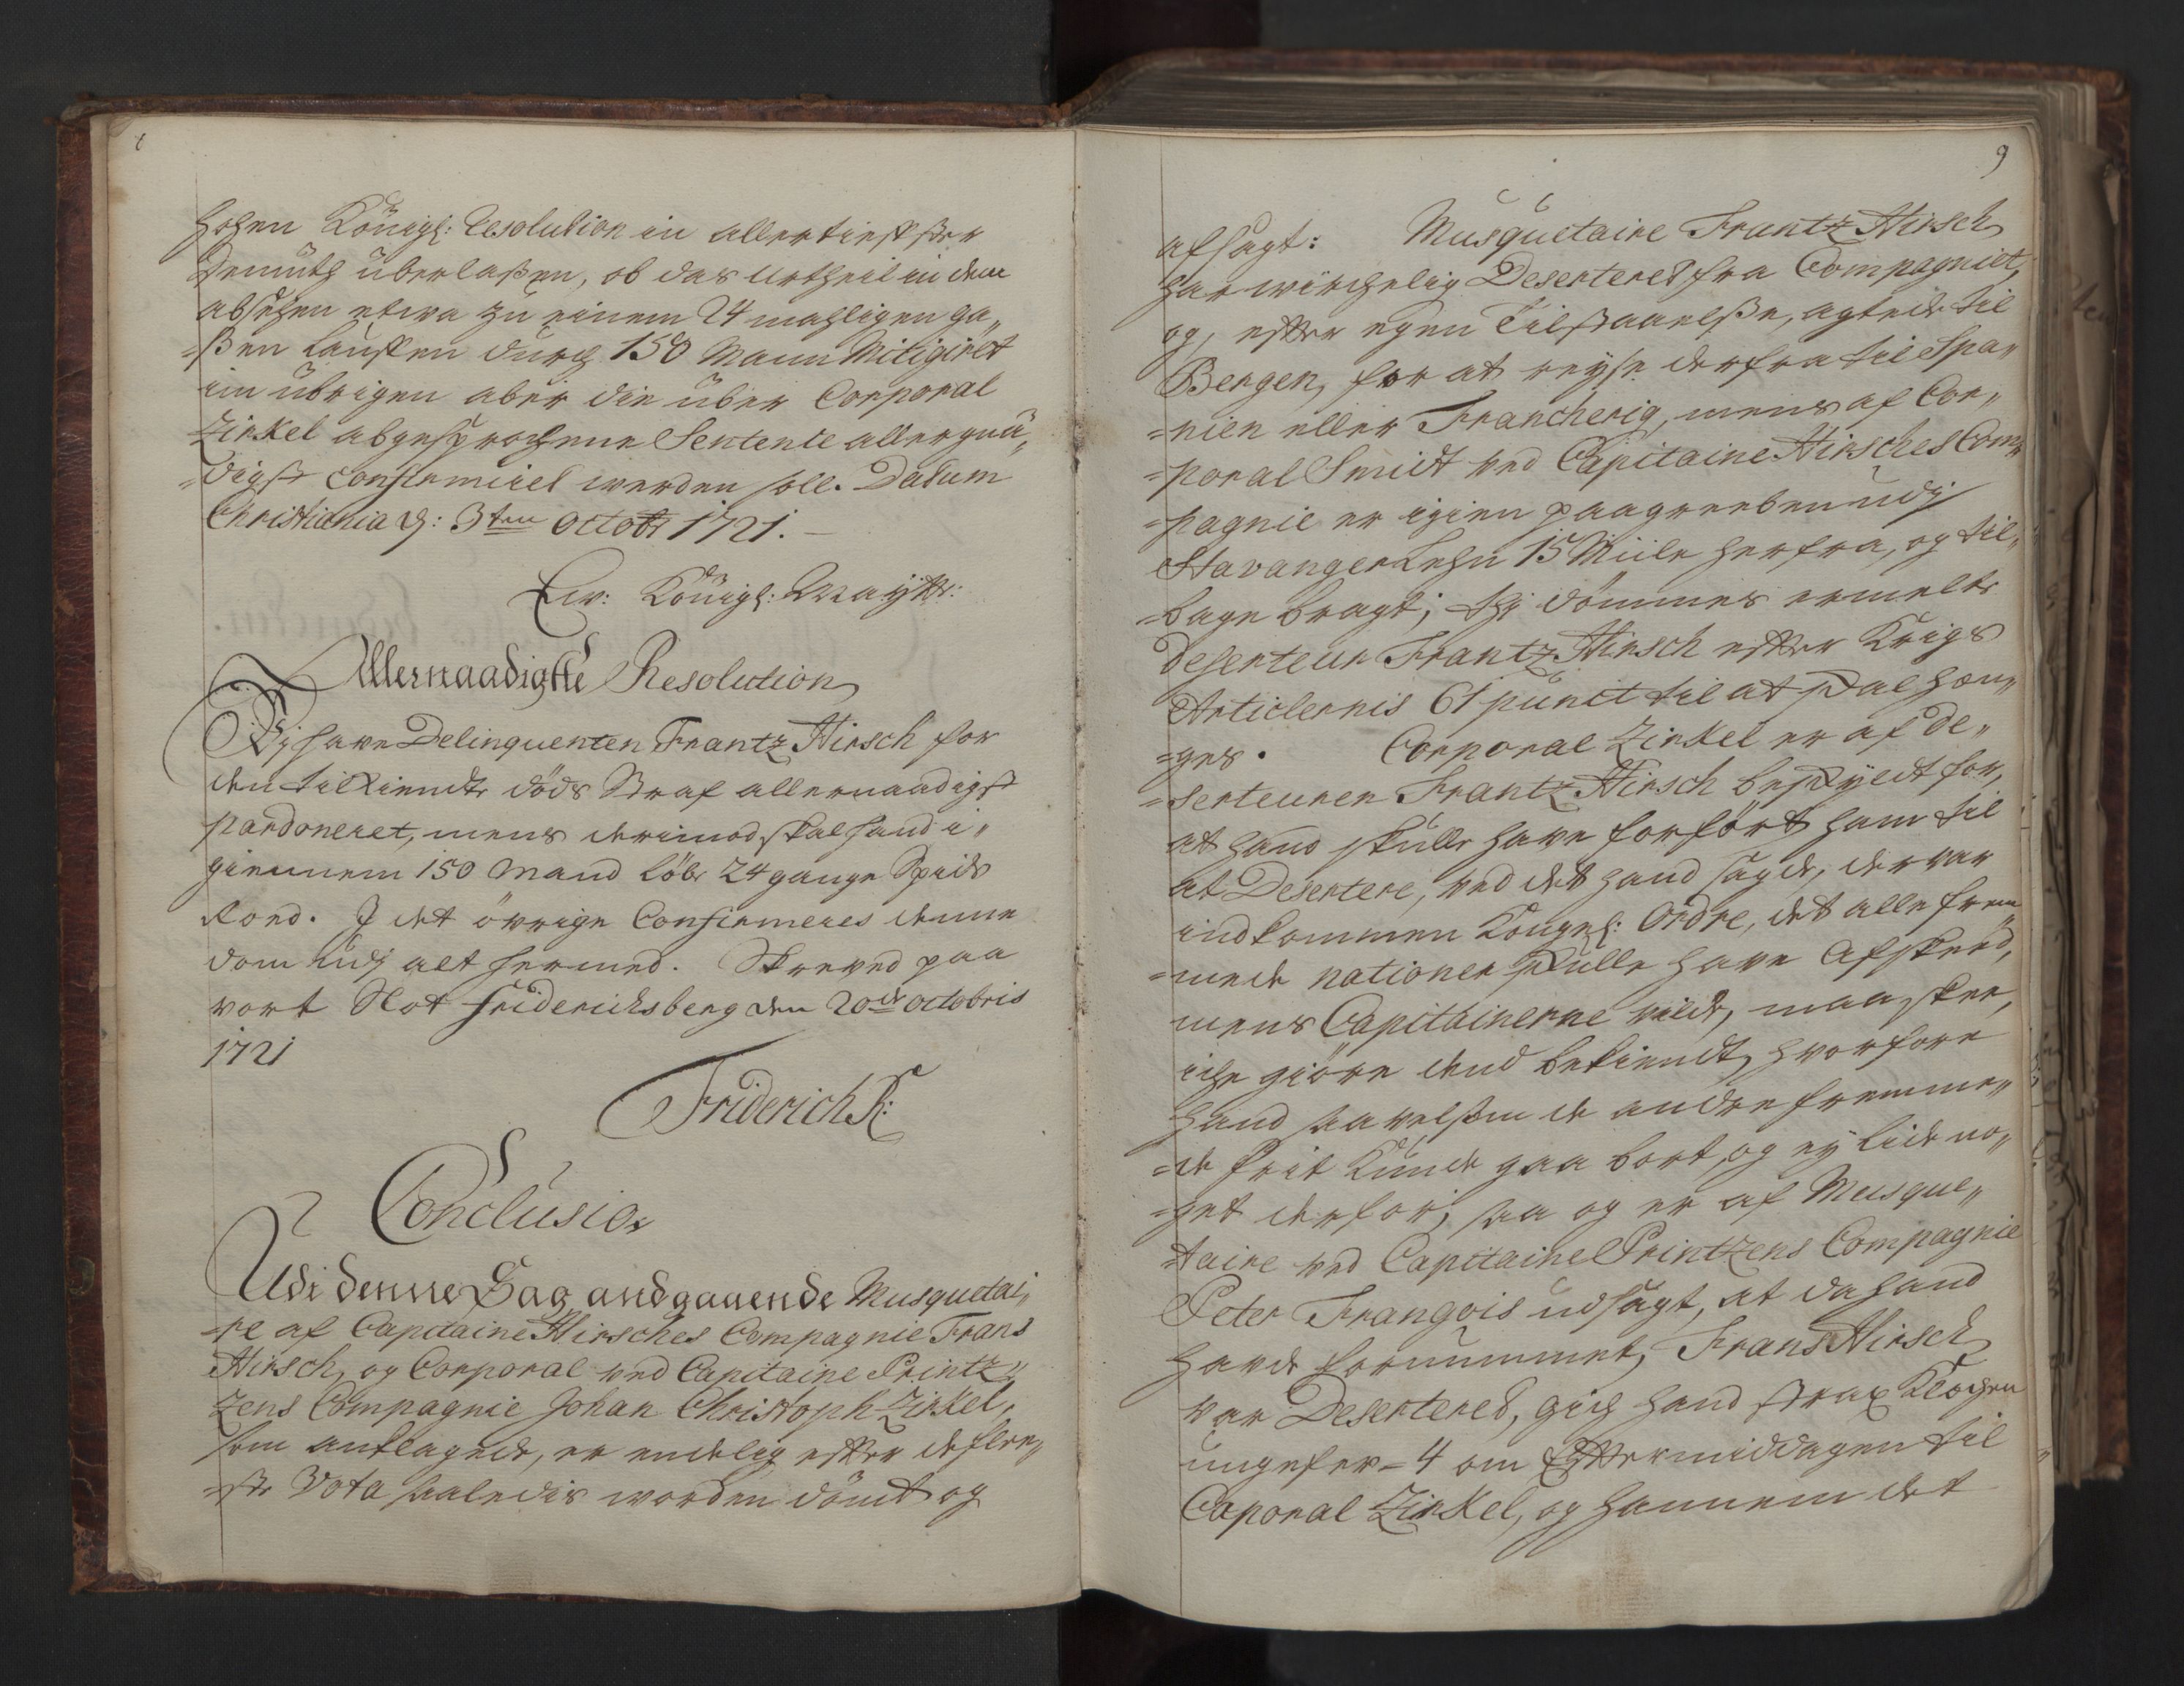 hohen Königl: Resolution in allertieffster
Demuth überlaßen, ob das Urtheil in dem
absehen etwa zu einem 24 mahligen ga„
=ßen lauffen durch 150 Mann Mitigiret
im übrigen aber die über Corporal
Zirkel abgesprochene Sentence allergnä„
=digst confirmiret werden soll. Datum
Christiania d: 3ten Octobr 1721. –
Ew: Königl: Mayttr:
Allernaadigste Resolution
Vj have Delinquenten Frantz Hirsch for
den tilkiendte döds Straf allernaadigst
pardoneret, mens derimod skal hand i„
giennem 150 Mand löbe 24 gange Spids
Roed. I det övrige Confirmeres denne
dom udj alt hermed. Skreved paa
vort Slot Friderichsberg den 20de Octobris
1721
Friderich R:
Conclusio.
Udi denne Sag andgaaende Musquetai„
=re af Capitaine Hirsches Compagnie Frans
Hirsch, og Corporal ved Capitaine Printz„
zens Compagnie Johan Christoph Zirkel,
som anklagede, er endelig efter de flee„
=ste Vota saaledis worden dömt og
9
afsagt: Musquetaire Frantz Hirsch
har würchelig Deserteret fra Compagniet,
og, efter egen Tilstaaelße, agtede til
Bergen, for at reyse derfra til Spa„
=nien eller Francherig, mens af Cor„
=poral Smidt ved Capitaine Hirsches Com„
=pagnie er igien paagreeben udj
Stavanger Lehn 15 Miile herfra, og til„
=bage bragt; thj dömmes ermelte
Deserteur Frantz Hirsch efter Krigs
Articlernis 61 punct til at skal hæn„
=ges. Corporal Zirkel er af De„
=serteuren Frantz Hirsch beskyldt for,
at hand skulle have forfört ham til
at Desertere, ved det hand sagde, der var
indkommen Kongel: Ordre, det alle frem„
=mede nationer skulle have Afskeed,
mens Capitainerne vilde, maa skee,
iche giöre dend bekiendt, hvorfore
hand saavelsom de andre fremme„
=de frit kunde gaa bort, og ey lide no„
=get derfor; saa og er af Musque„
taire ved Capitaine Printzens Compagnie
Peter Frangois udsagt, at da hand
havde fornummet, Frans Hirsch
var Deserteret, gich hand strax Klochen
ungefer – 4 om Eftermiddagen til
Caporal Zirkel, og hannem det